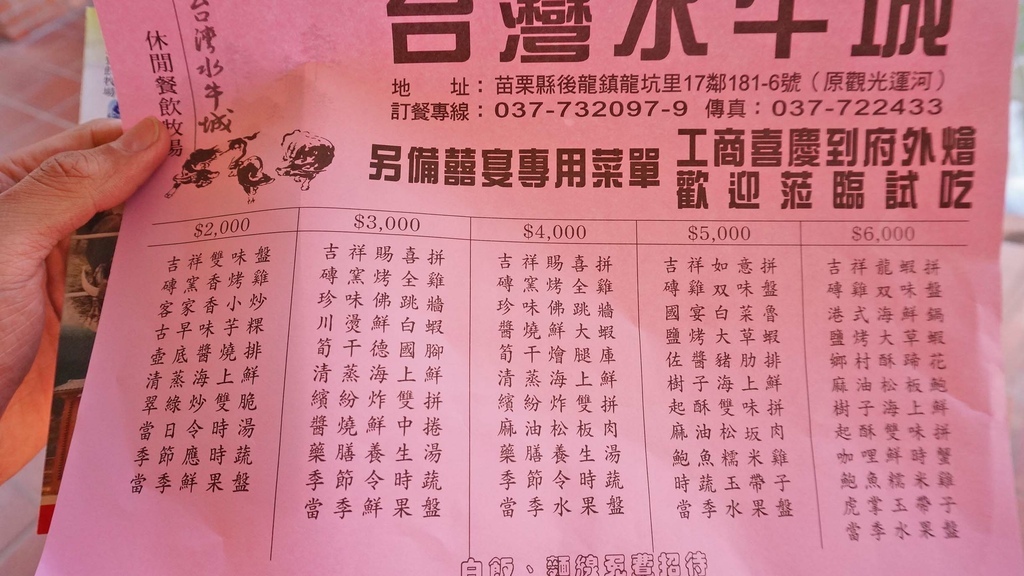 台灣水牛城
休閒餐飲牧場
台灣水牛城
地 址：苗栗縣後龍鎮龍坑里17鄰181-6號（原觀光運河）
訂餐專線：037-732097-9 傳真：037-722433
另備囍宴專用菜單
工商喜慶到府外燴
歡迎蒞臨試吃
$2,000
吉祥雙味盤
磚窯烤雞
客家香小炒
古早味芋粿
壺底醬燒排
清蒸海上鮮
翠綠炒雙脆
當日令時湯
季節應時蔬
當季鮮果盤
$3,000
吉祥賜喜拼
磚窯烤全雞
珍味佛跳牆
川燙鮮白蝦
筍干德國腳
清蒸海上鮮
繽紛炸雙拼
燒鮮中捲
藥膳養生湯
季節令時蔬
當季鮮果盤
$4,000
吉祥賜喜拼
磚窯烤全雞
珍味佛跳牆
醬燒鮮大蝦
筍干燴腿庫
清蒸海上鮮
繽紛炸雙拼
麻油松板肉
藥膳養生湯
季節令時蔬
當季水果盤
$5,000
吉祥如意拼
磚雞双味盤
國宴白菜魯
鹽烤大草蝦
佐醬豬肋排
樹子海上鮮
起酥雙味拼
麻油松坂肉
鮑魚糯米雞
時蔬玉帶子
當季水果盤
$6,000
吉祥龍蝦拼
磚雞双味盤
港式海鮮鍋
鹽烤大草蝦
鄉村酥蹄花
麻油松板鮑
樹子海上鮮
起酥雙味拼
咖哩鮮時蟹
鮑魚糯米雞
虎掌玉帶子
當季水果盤
白飯、麵線免費招待